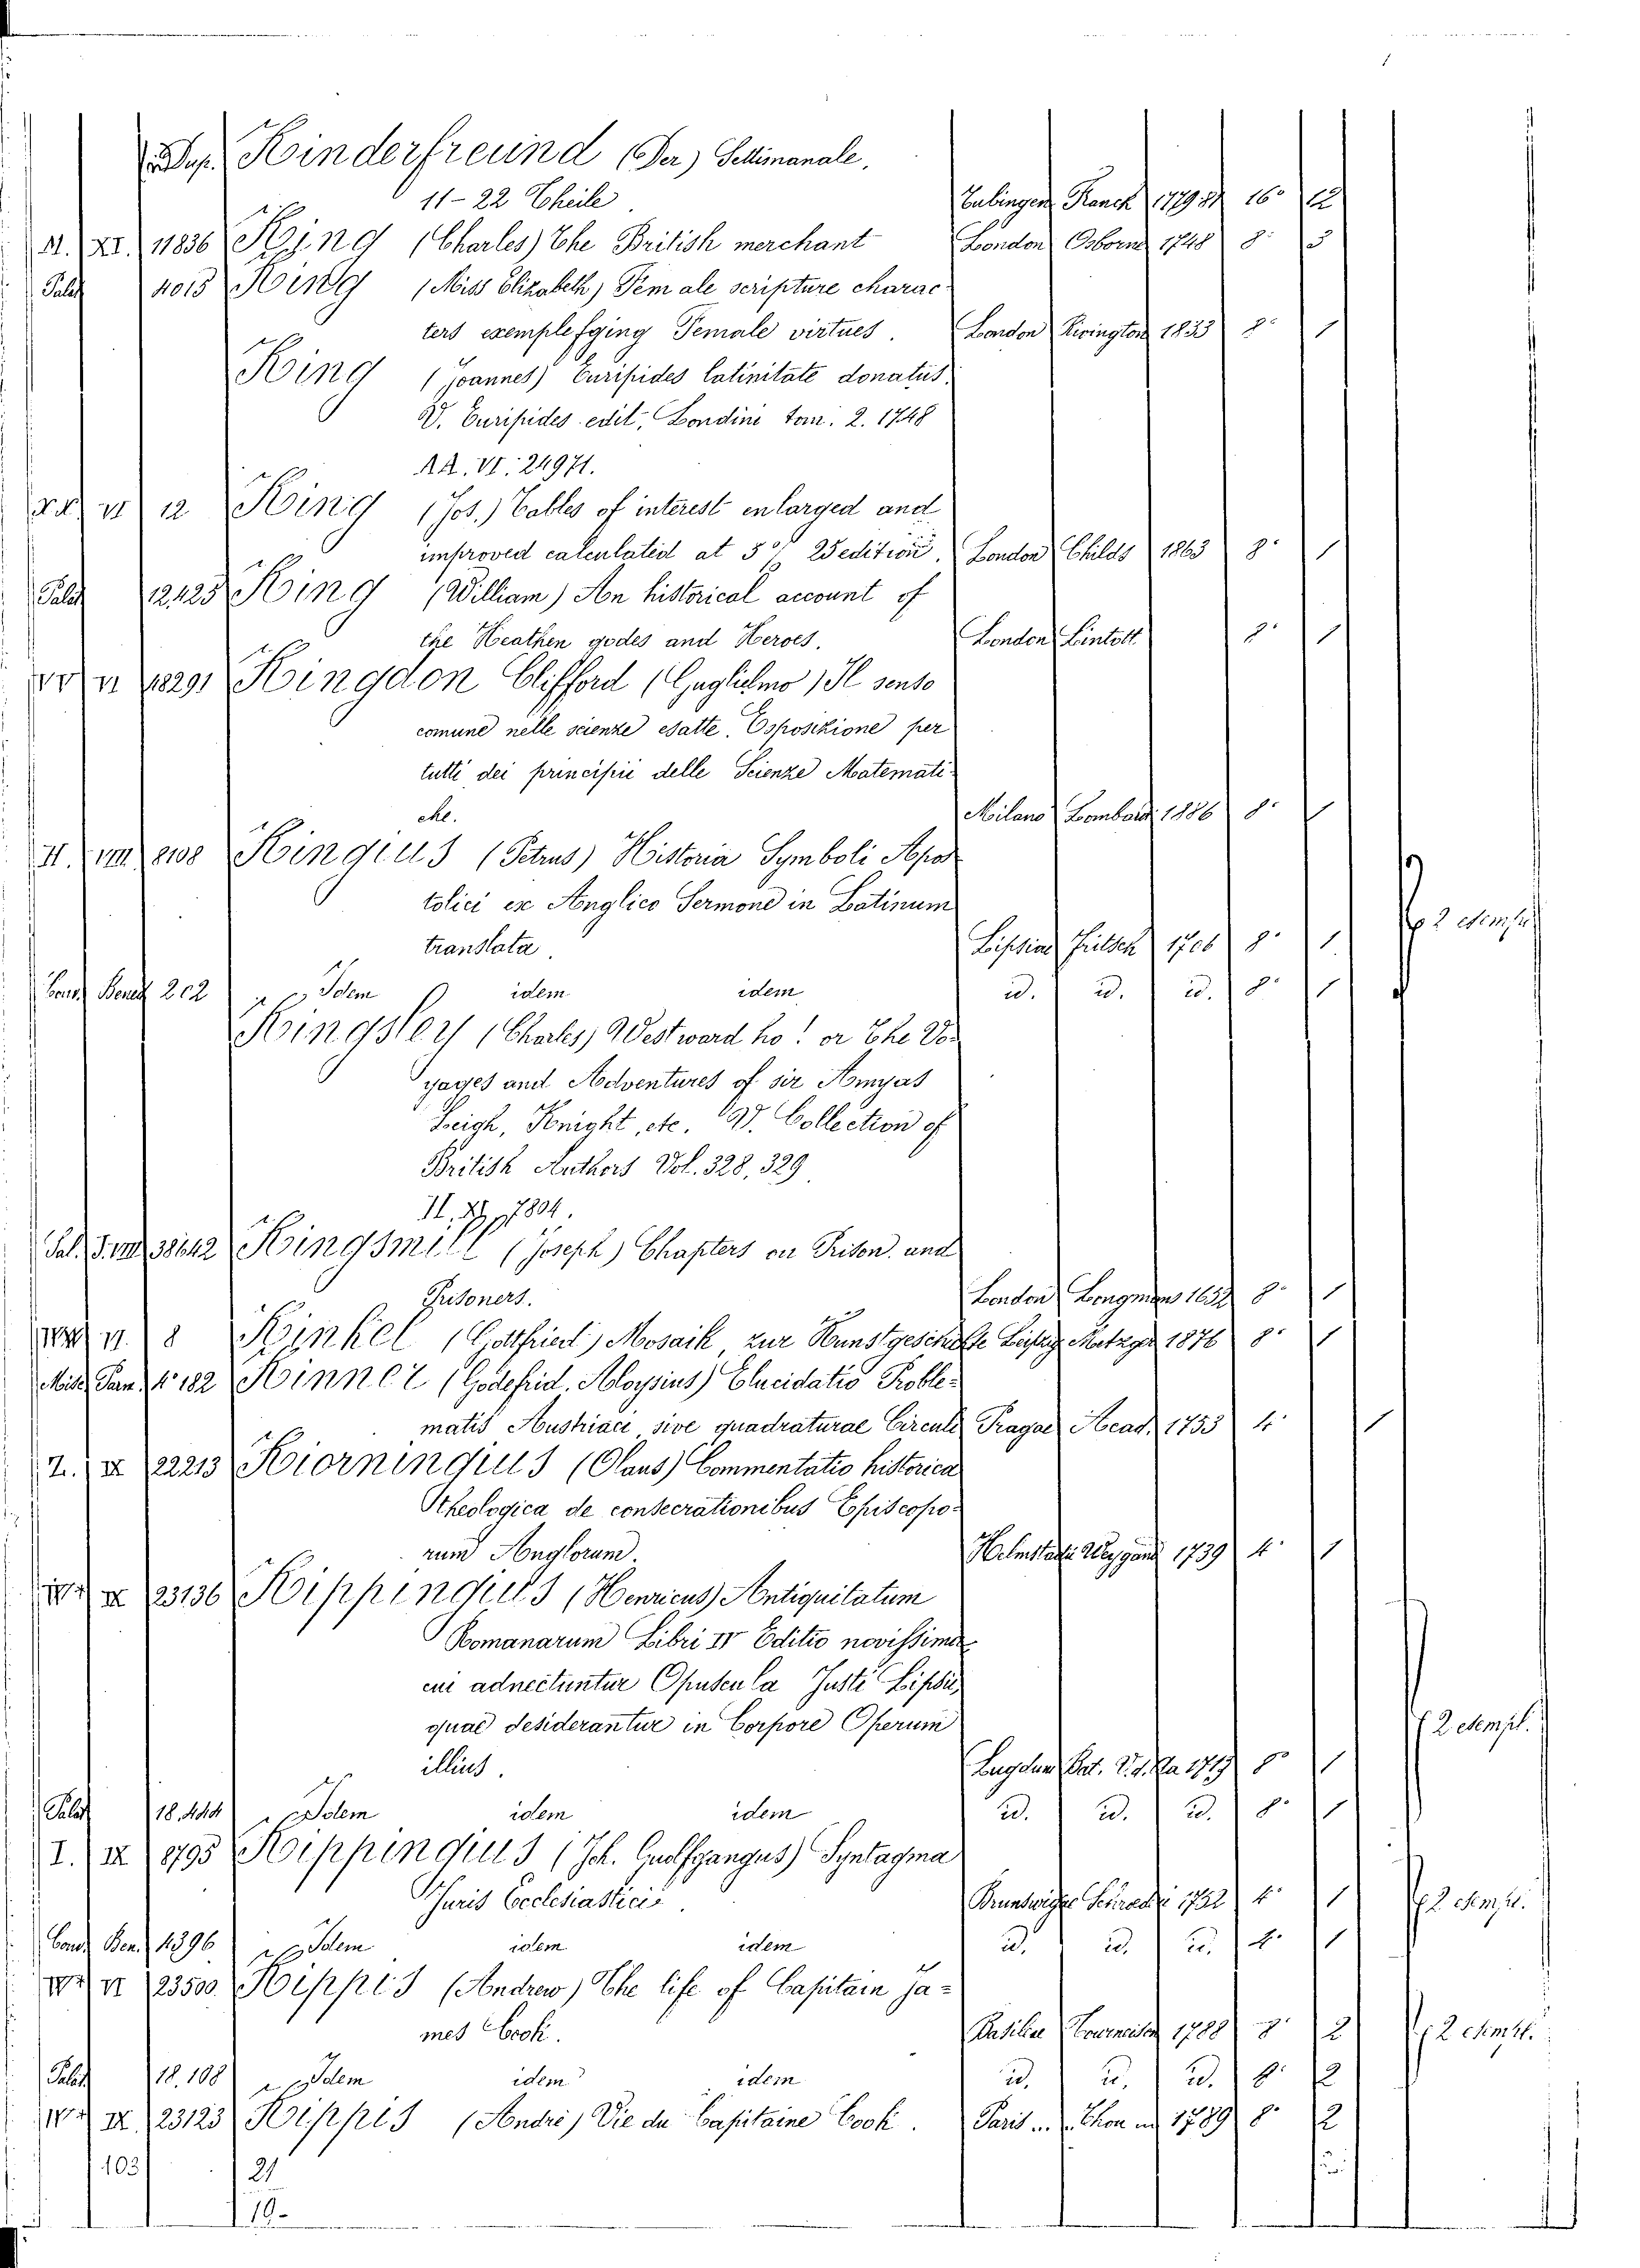 Dup. Kinderfreund (Der) Settimanale.
11-22 Theile Tubingen Franck 16° 12
11836 King (Charles) The British merchant London Osborne 1748 8° 3
Palat 4015 King (Miss Elizabeth) Female scripture charac-
ters exemplefging Female virtues. London Rivington 1833 8° 1
King (Joannes) Euripides latinitate donatus.
V. Euripides edit. Londini tom. 2. 1748
AA. VI. 24971.
VI 12 King (Jos.) Tables of interest enlarged and
improved calculated at 5% 2 edition. London Childs 1863 8° 1
Palat 12425 King (William) An historical account of
the Heathen godes and Heroes. London Lintott 8° 1
VI 1829 Kingdon Clifford (Guglielmo) Il senso
comune nelle scienze esatte. Esposizione per
tutti dei principii delle Scienze Matemati-
che. Milano Lombard 1886 8° 1
II. VIII. 8108 Kingius (Petrus) Historia Symboli Apos
tolici ex Anglico Sermone in Latinum
translata. Lipsiae Fritsch 1706 8° 1 2 esempl.
Cons. Benef 202 Idem idem idem id. id. id. 8° 1
Kingsley (Charles) Westward ho! or The Vo-
yages and Adventures of sir Amyas
Leigh, Knight, etc. V. Collection of
British Authors Vol. 328, 329.
II. XI 7804.
Pal. 38642 Kingsmill (Joseph) Chapters on Prison and
Prisoners. London Longmans 8° 1
VI. 8 Kinkel (Gottfried) Mosaik zur Kunstgeschichte Leipzig Metzger 1876 8° 1
Misc. Pam. 4° 182 Kinner (Godefrid. Aloysius) Elucidatio Proble-
matis Austriaci sive quadraturae Circuli Pragae Acad. 1753 4° 1
Z. IX 22213 Kiorningius (Olaus) Commentatio historica
Theologica de consecrationibus Episcopo-
rum Anglorum. Helmstadii Weygand 1739 4° 1
IX 23136 Kippingius (Henricus) Antiquitatum
Romanarum Libri IV Editio novissima
cui adnectuntur Opuscula Justi Lipsii,
quae desiderantur in Corpore Operum 2 esempl.
illius. Lugdun Bat. 8° 1
Palat 18.444 Idem idem idem id. id. id. 8° 1
I. IX 8795 Kippingius (Joh. Guolfgangus) Syntagma
Juris Ecclesiastici. Brunswigae 1752 4° 1 2 esempl.
Cons. Ben. 4396 Idem idem idem id. id. id. 4° 1
VI 23500 Kippis (Andrew) The life of Capitain Ja-
mes Cook. Basileae Tourneisen 1788 8° 2 2 esempl.
Palat 18.108 Idem idem idem id. id. id. 8° 2
IX 23123 Kippis (André) Vie du Capitaine Cook. Paris Thou 1789 8° 2
103 21
19-